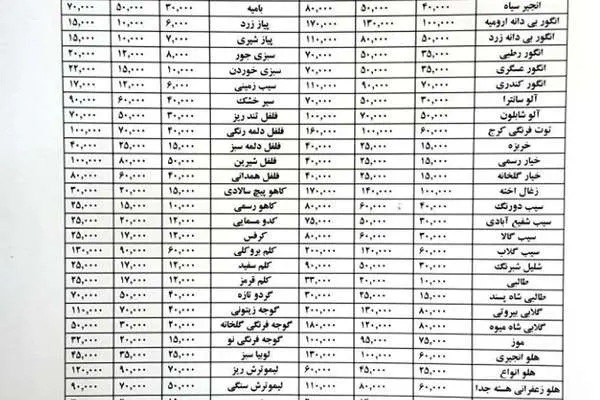 انجیر سیاه ۴۰,۰۰۰ ۵۰,۰۰۰ ۸۰,۰۰۰ بامیه ۳۰,۰۰۰ ۵۰,۰۰۰ ۷۰,۰۰۰
انگور بی دانه ارومیه ۱۰۰,۰۰۰ ۱۳۰,۰۰۰ ۱۷۰,۰۰۰ پیاز زرد ۶,۰۰۰ ۱۰,۰۰۰ ۱۵,۰۰۰
انگور بی دانه زرد ۵۰,۰۰۰ ۸۰,۰۰۰ ۱۱۰,۰۰۰ پیاز شیری ۷,۰۰۰ ۱۰,۰۰۰ ۱۵,۰۰۰
انگور رطبی ۳۵,۰۰۰ ۵۰,۰۰۰ ۷۰,۰۰۰ سبزی جور ۸,۰۰۰ ۱۲,۰۰۰ ۲۰,۰۰۰
انگور عسگری ۳۵,۰۰۰ ۵۰,۰۰۰ ۷۰,۰۰۰ سبزی خوردن ۱۰,۰۰۰ ۱۵,۰۰۰ ۲۲,۰۰۰
انگور کندری ۷۰,۰۰۰ ۹۰,۰۰۰ ۱۱۰,۰۰۰ سیب زمینی ۶,۰۰۰ ۱۲,۰۰۰ ۱۷,۰۰۰
آلو سانترا ۳۰,۰۰۰ ۵۰,۰۰۰ ۷۰,۰۰۰ سیر خشک ۴۰,۰۰۰ ۶۰,۰۰۰ ۹۰,۰۰۰
آلو شابلون ۵۰,۰۰۰ ۷۰,۰۰۰ ۱۰۰,۰۰۰ فلفل تند ریز ۳۰,۰۰۰ ۵۰,۰۰۰ ۷۰,۰۰۰
توت فرنگی کرج ۶۰,۰۰۰ ۱۰۰,۰۰۰ ۱۶۰,۰۰۰ فلفل دلمه رنگی ۴۰,۰۰۰ ۷۰,۰۰۰ ۱۰۰,۰۰۰
خربزه ۱۵,۰۰۰ ۲۵,۰۰۰ ۴۰,۰۰۰ فلفل دلمه سبز ۱۵,۰۰۰ ۲۵,۰۰۰ ۴۰,۰۰۰
خیار رسمی ۱۵,۰۰۰ ۲۵,۰۰۰ ۴۰,۰۰۰ فلفل شیرین ۵۰,۰۰۰ ۸۰,۰۰۰ ۱۰۰,۰۰۰
خیار گلخانه ۱۵,۰۰۰ ۲۵,۰۰۰ ۴۰,۰۰۰ فلفل همدانی ۴۰,۰۰۰ ۶۰,۰۰۰ ۸۰,۰۰۰
زغال اخته ۱۰۰,۰۰۰ ۱۴۰,۰۰۰ ۱۷۰,۰۰۰ کاهو پیچ سالادی ۱۵,۰۰۰ ۲۰,۰۰۰ ۳۰,۰۰۰
سیب دورنگ ۴۰,۰۰۰ ۶۰,۰۰۰ ۸۰,۰۰۰ کاهو رسمی ۱۰,۰۰۰ ۱۵,۰۰۰ ۲۵,۰۰۰
سیب شفیع آبادی ۳۰,۰۰۰ ۵۰,۰۰۰ ۷۵,۰۰۰ کدو مسمایی ۱۲,۰۰۰ ۲۰,۰۰۰ ۲۵,۰۰۰
سیب گالا ۳۰,۰۰۰ ۶۰,۰۰۰ ۸۰,۰۰۰ کرفس ۱۲,۰۰۰ ۱۷,۰۰۰ ۲۵,۰۰۰
سیب گلاب ۶۰,۰۰۰ ۱۲۰,۰۰۰ ۲۰۰,۰۰۰ کلم بروکلی ۶۰,۰۰۰ ۹۰,۰۰۰ ۱۳۰,۰۰۰
شلیل شبرنگ ۳۰,۰۰۰ ۵۰,۰۰۰ ۹۰,۰۰۰ کلم سفید ۱۲,۰۰۰ ۱۷,۰۰۰ ۲۵,۰۰۰
طالبی ۱۰,۰۰۰ ۲۰,۰۰۰ ۳۳,۰۰۰ کلم قرمز ۱۲,۰۰۰ ۱۷,۰۰۰ ۲۵,۰۰۰
طالبی شاه پسند ۱۵,۰۰۰ ۲۵,۰۰۰ ۳۰,۰۰۰ گردو تازه ۲۰,۰۰۰ ۵۰,۰۰۰ ۷۰,۰۰۰
گلابی بیروتی ۸۰,۰۰۰ ۱۳۰,۰۰۰ ۲۰۰,۰۰۰ گوجه زیتونی ۲۰,۰۰۰ ۷۰,۰۰۰ ۱۱۰,۰۰۰
گلابی شاه میوه ۸۰,۰۰۰ ۱۲۰,۰۰۰ ۱۸۰,۰۰۰ گوجه فرنگی گلخانه ۲۰,۰۰۰ ۳۰,۰۰۰ ۵۰,۰۰۰
موز ۷۵,۰۰۰ ۹۵,۰۰۰ ۱۰۰,۰۰۰ گوجه فرنگی نو ۱۵,۰۰۰ ۲۰,۰۰۰ ۳۲,۰۰۰
هلو انجیری ۶۰,۰۰۰ ۱۰۰,۰۰۰ ۱۳۰,۰۰۰ لوبیا سبز ۲۵,۰۰۰ ۳۵,۰۰۰ ۴۵,۰۰۰
هلو انواع ۲۵,۰۰۰ ۴۵,۰۰۰ ۶۰,۰۰۰ لیموترش ریز ۷۰,۰۰۰ ۹۰,۰۰۰ ۱۲۰,۰۰۰
هلو زعفرانی هسته جدا ۶۰,۰۰۰ ۸۰,۰۰۰ ۱۱۰,۰۰۰ لیموترش سنگی ۵۰,۰۰۰ ۷۰,۰۰۰ ۹۰,۰۰۰